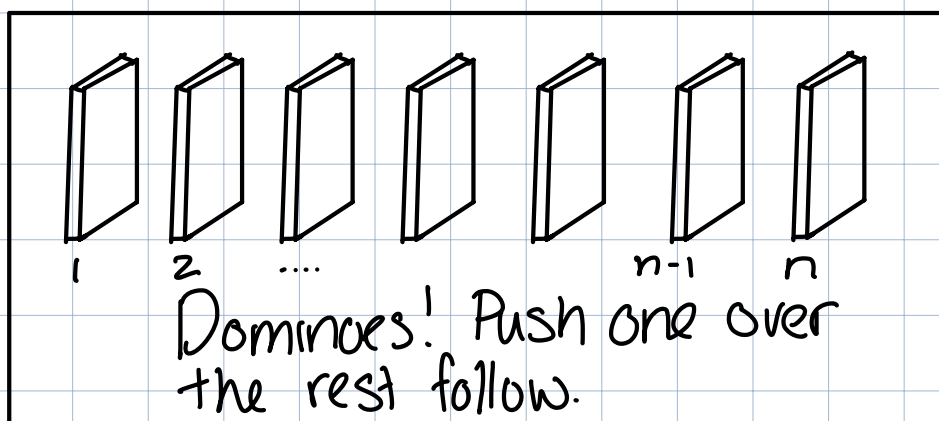 1 2 .... n-1 n
Dominoes! Push one over
the rest follow.